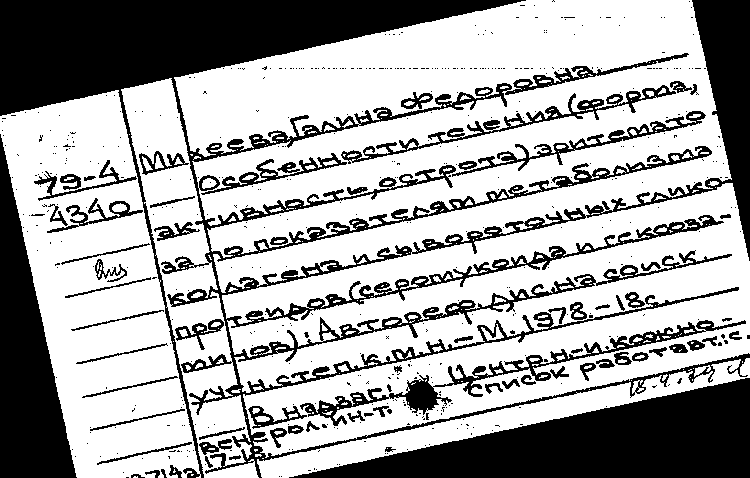 Михеева, Галина Федоровна.
79-4
4340
Особенности течения (форма,
активность, острота) эритемато-
за по показателям метаболизма
коллагена и сывороточных глико-
протеидов (серомукоида и гексоза-
минов): Автореф. дис. на соиск.
учен. степ. к.м.н. - М., 1978. - 18 с.
В надзаг.: Центр. н.-и. кожно-
венерол. ин-т. Список работ авт.: с.
17-18.